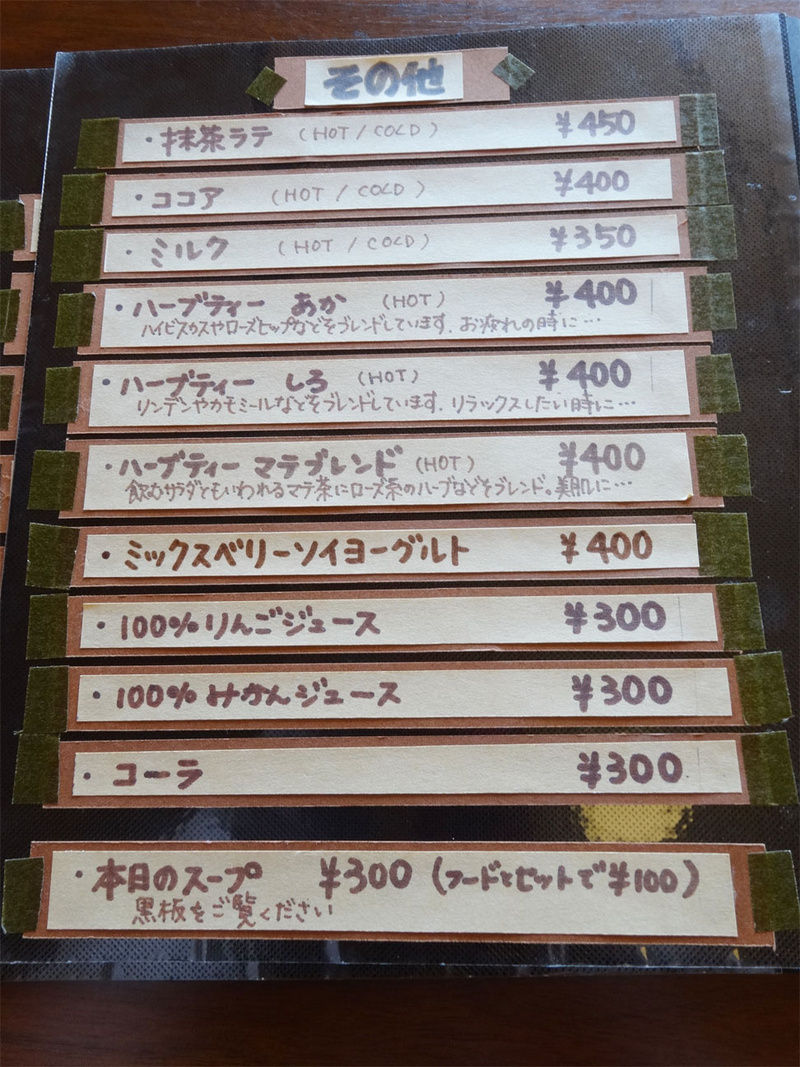 その他
・抹茶ラテ (HOT / COLD) ¥450
・ココア (HOT / COLD) ¥400
・ミルク (HOT / COLD) ¥350
・ハーブティー あか (HOT) ¥400
ハイビスカスやローズヒップなどをブレンドしています。お疲れの時に…
・ハーブティー しろ (HOT) ¥400
リンデンやカモミールなどをブレンドしています。リラックスしたい時に…
・ハーブティー マテブレンド (HOT) ¥400
飲むサラダともいわれるマテ茶にローズ系のハーブなどをブレンド。美肌に…
・ミックスベリーソイヨーグルト ¥400
・100%りんごジュース ¥300
・100%みかんジュース ¥300
・コーラ ¥300
・本日のスープ ¥300 (フードとセットで¥100)
黒板をご覧ください